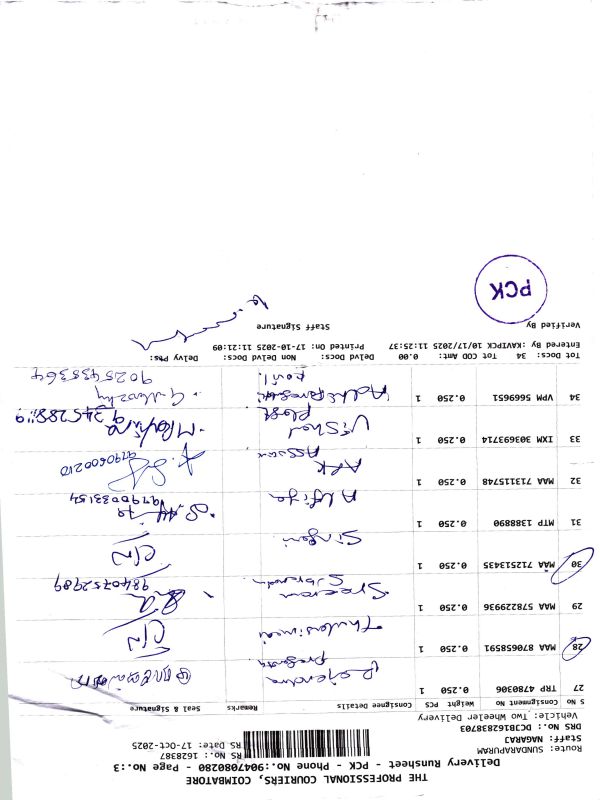 THE PROFESSIONAL COURIERS, COIMBATORE
Delivery Runsheet - PCK - Phone No.:9047080280 - Page No.:3
Route: SUNDARAPURAM
Staff: NAGARAJ
DRS No.: DC3B1628838703
Vehicle: Two Wheeler Delivery
RS No.: 1628387
RS Date: 17-Oct-2025
S No Consignment No Weight PCS Consignee Details Remarks Seal & Signature
27 TRP 4780306 0.250 1 Rajendra prasanta
28 MAA 870658591 0.250 1 Thulasimai C/N
29 MAA 578229936 0.250 1 Sreeram 9840752989
30 MAA 712513435 0.250 1 Singeri C/N
31 MTP 1388890 0.250 1 Alfiya 9790033154
32 MAA 711315748 0.250 1 APK Assian 9790600210
33 IXM 303693714 0.250 1 Vishal
34 VPM 5669651 0.250 1 9025435364
Tot Docs: 34 Tot COD Amt: 0.00 Delvd Docs: Non Delvd Docs: Delvy Phs:
Entered By :KAVIPCK 10/17/2025 11:25:37 Printed On: 17-10-2025 11:21:09
Verified By Staff Signature
PCK